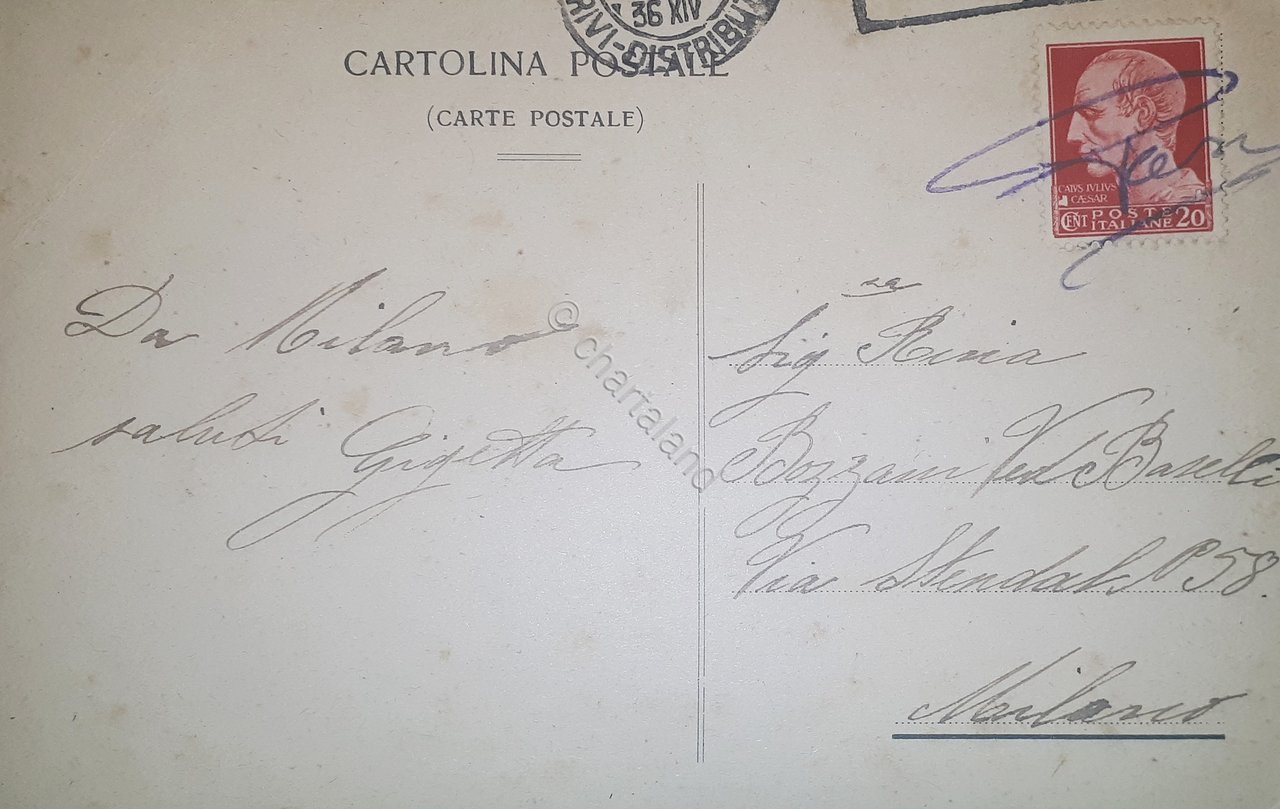 36 XIV
RIVI-DISTRIBU
CARTOLINA POSTALE
(CARTE POSTALE)
CAIVS IVLIVS
CÆSAR
CENT POSTE ITALIANE 20
Da Milano
saluti Gigetta
Sig.ra Rina
Bozzani Ved Baselli
Via Stendal N° 58.
Milano
© chartaland